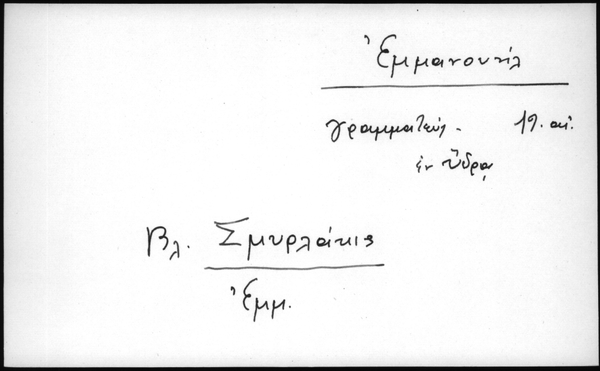 Ἐμμανουήλ
γραμματεύς. 19. αἰ.
ἐν Ὕδρᾳ
Βλ. Σμυρλάκις
Ἐμμ.